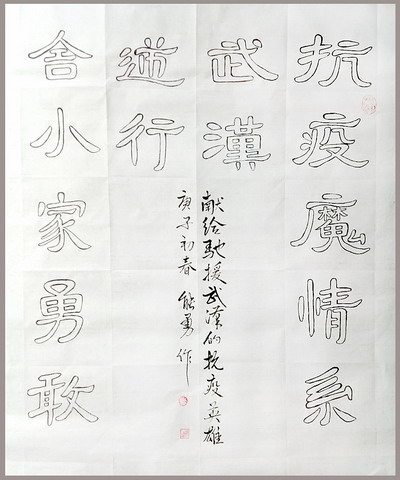 抗疫魔情系
武漢
逆行
舍小家勇敢
献给馳援武漢的抗疫英雄
庚子初春 能勇作